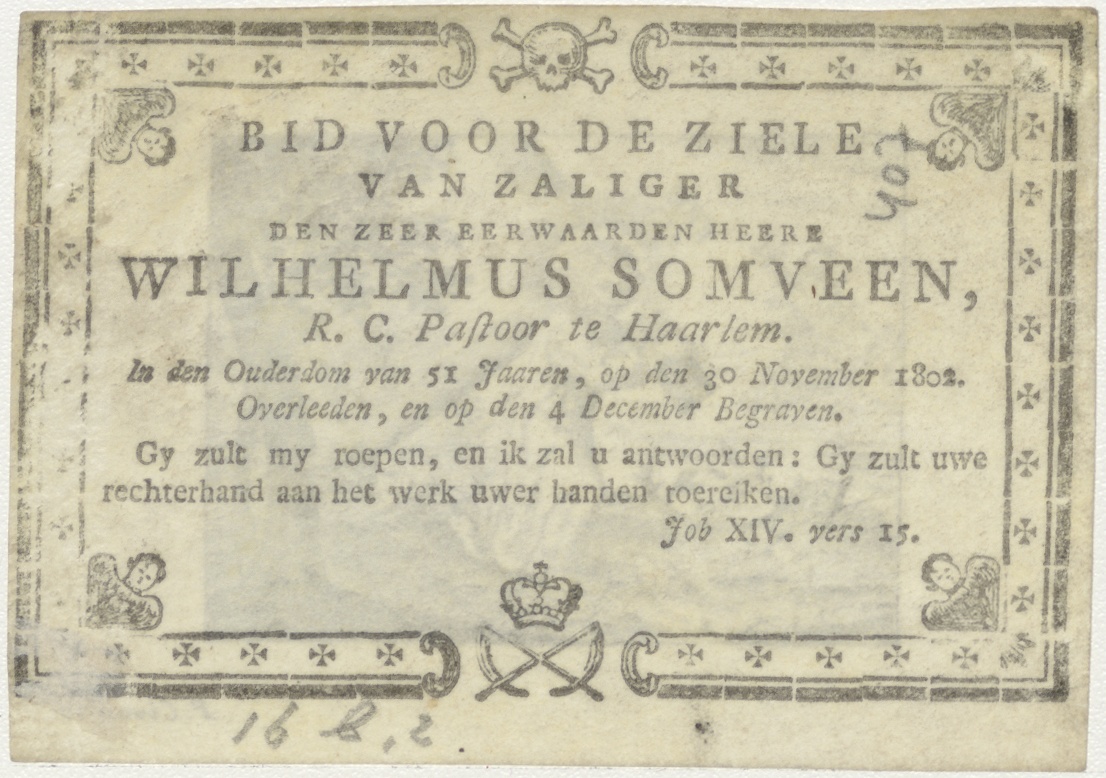 BID VOOR DE ZIELE
VAN ZALIGER
DEN ZEER EERWAARDEN HEERE
WILHELMUS SOMVEEN,
R. C. Paſtoor te Haarlem.
In den Ouderdom van 51 Jaaren, op den 30 November 1802.
Overleeden, en op den 4 December Begraven.
Gy zult my roepen, en ik zal u antwoorden: Gy zult uwe
rechterhand aan het werk uwer handen toereiken.
Job XIV. vers 15.
407
16 B.2